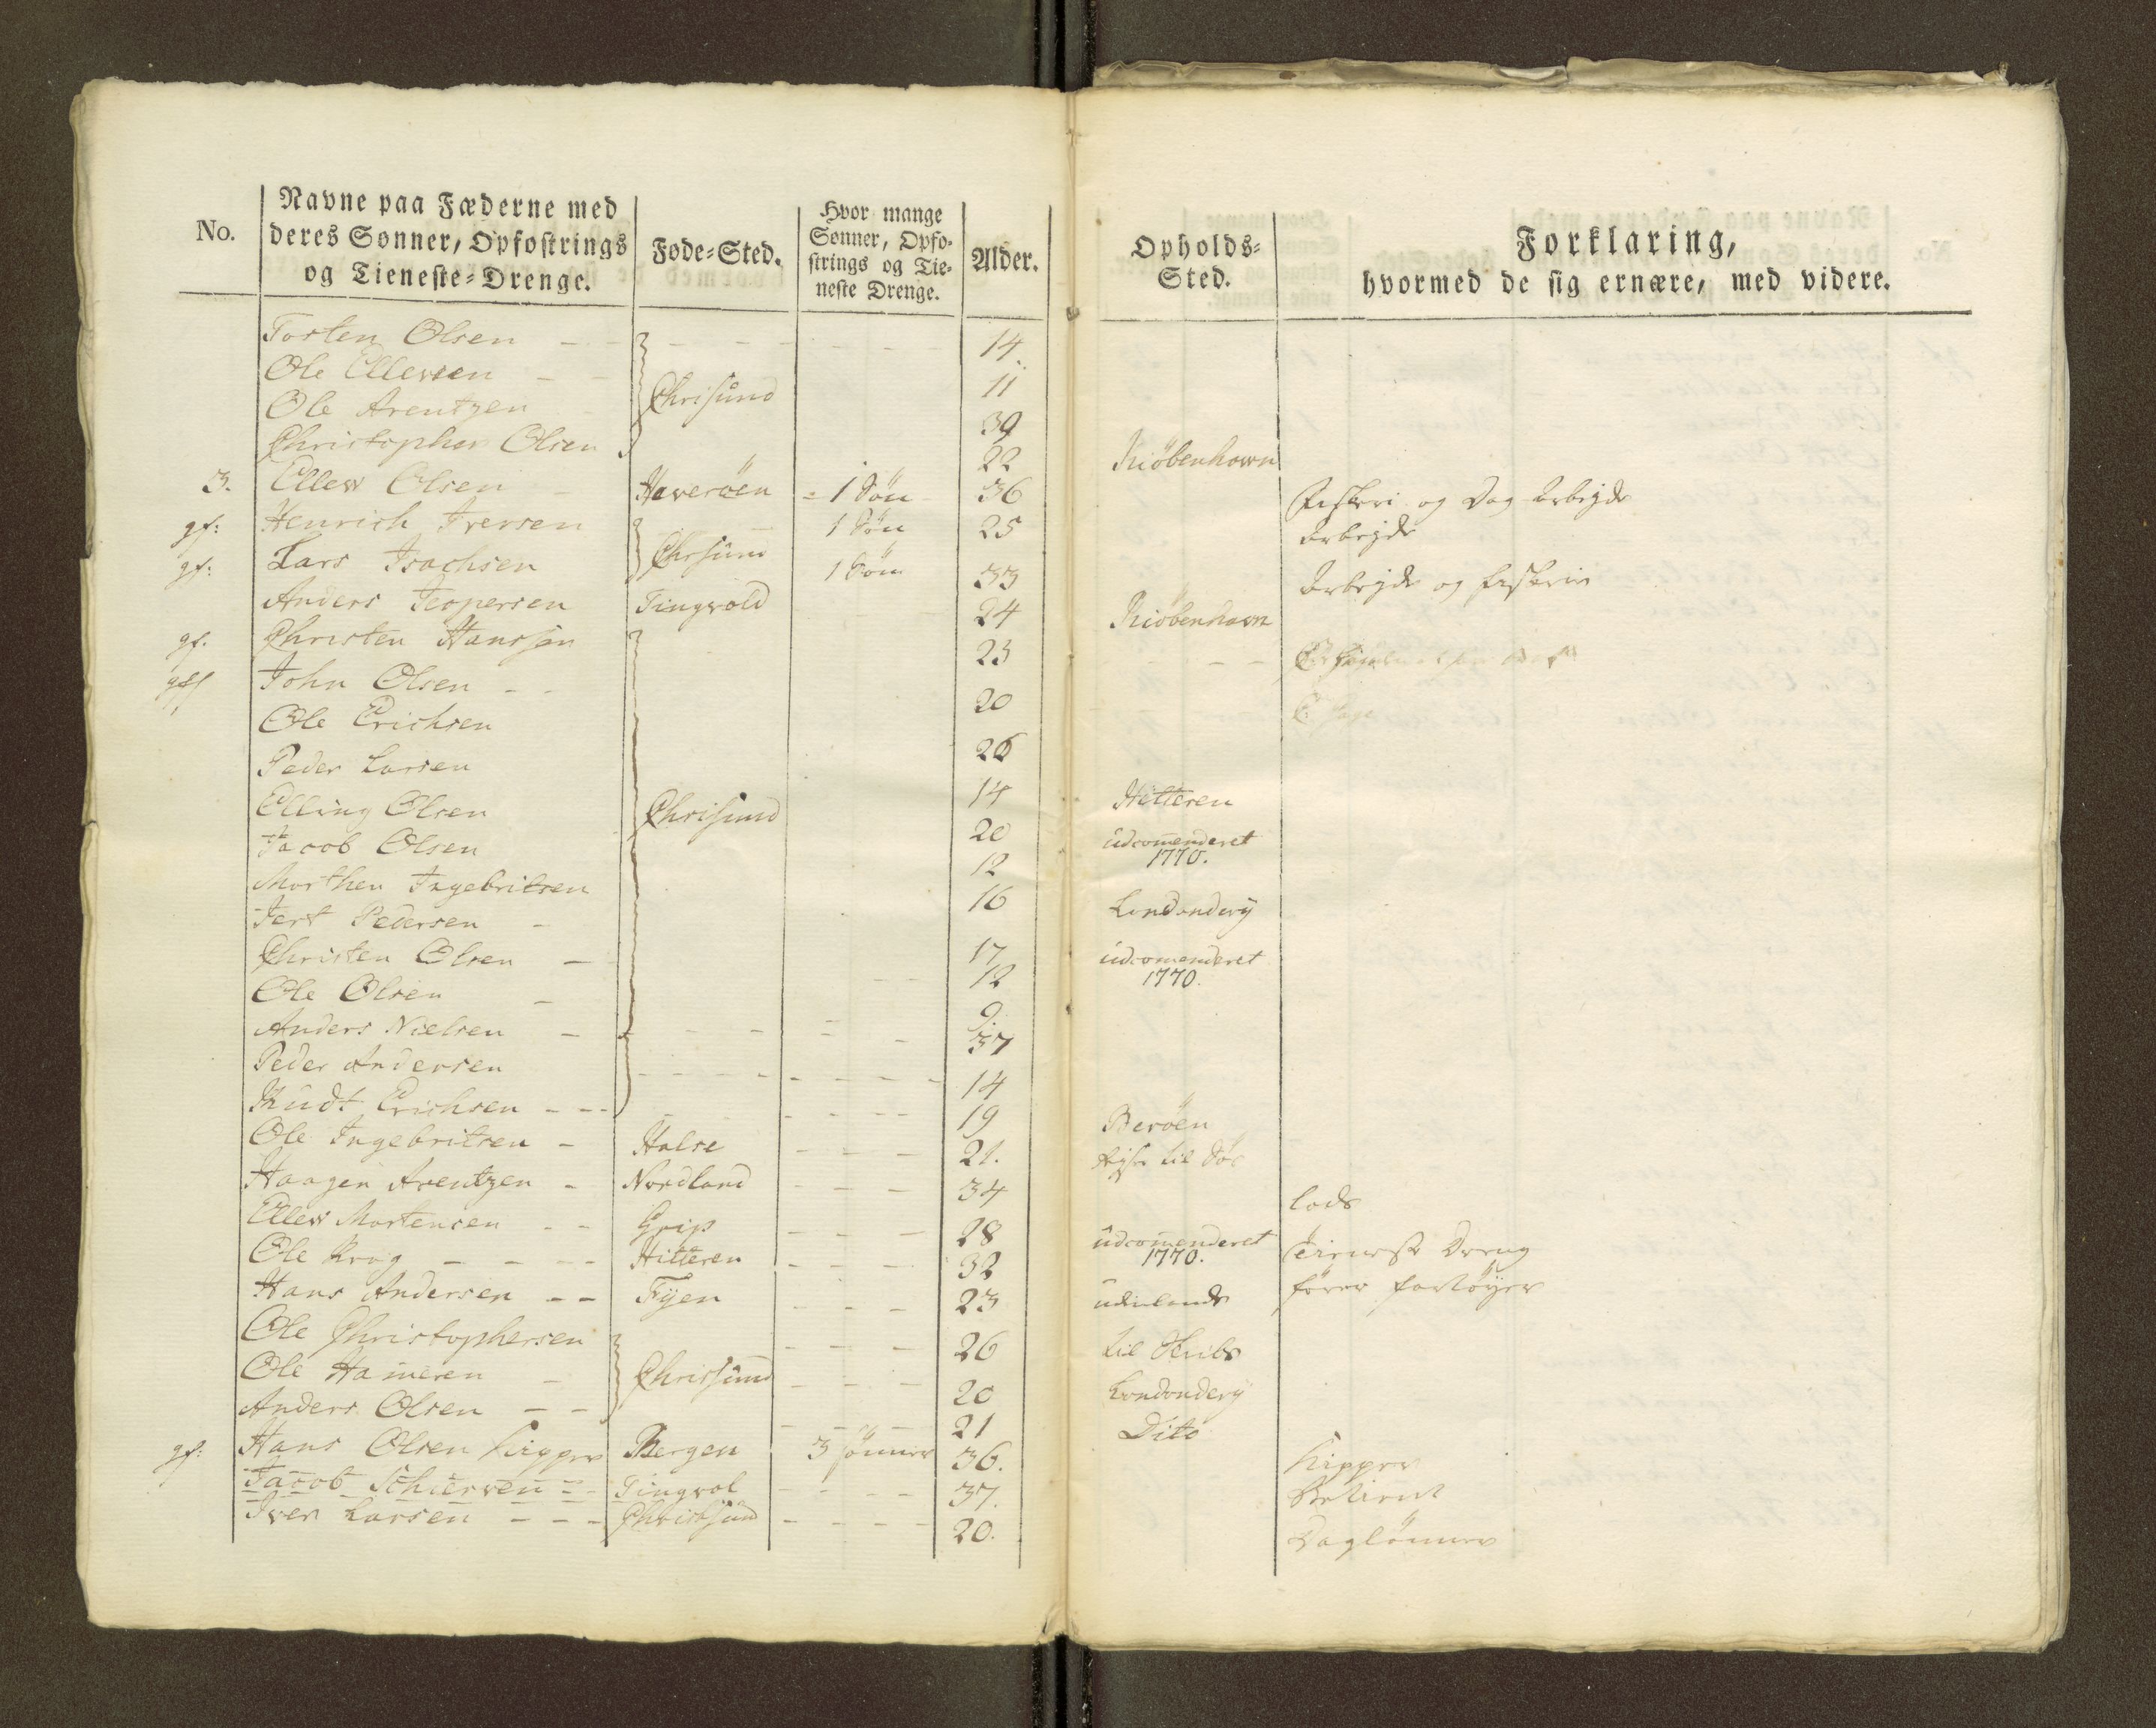 No.
Navne paa Fæderne med
deres Sønner, Opfostrings
og Tieneste-Drenge.
Føde-Sted.
Hvor mange
Sønner, Opfo-
strings og Tie-
neste Drenge.
Alder.
Opholds-
Sted.
Forklaring,
hvormed de sig ernære, med videre.
Torsten Olsen 14
Ole Ellevsen 11
Ole Arentzen Chrisund 39
Christopher Olsen 22 Kiöbenhavn
3. Ellew Olsen Haveröen 1 Sön 36 Fiskeri og Dag Arbejde
gf: Henrich Iversen 1 Sön 25 Arbejde
gf: Lars Isachsen Chrsund 1 Sön 33 Arbejde og fiskerie
Anders Jespersen Tingvold 24 Kiöbenhavn
gf. Christen Hanssen 23
John Olsen 20
Ole Erichsen 26
Peder Larsen 14 Hitteren
Elling Olsen Chrisund 20 udcomenderet 1770.
Jacob Olsen 12
Morthen Ingebritsen 16 Londondery
Jert Pedersen 17 udcomenderet 1770.
Christen Olsen 12
Ole Olsen 9.
Anders Nielsen 37
Peder Andersen 14
Knudt Erichsen 19 Beröen
Ole Ingebritsen Halse 21. til Söe
Haagen Arentzen Nordland 34 Lods
Ellew Mortensen Grip 28 udcomenderet 1770. Tieneste Dreng
Ole Krog Hitteren 32 fører fartöyer
Hans Andersen Fyen 23 udenlands
Ole Christophersen 26 til Skibs
Ole Hameren Chrissund 20 Londondery
Anders Olsen 21 Dito
gf: Hans Olsen Kipper Bergen 3 sönner 36. Kipper
Jacob Schierven Tingvol 37. Betient
Iver Larsen Christsund 20. Daglönner